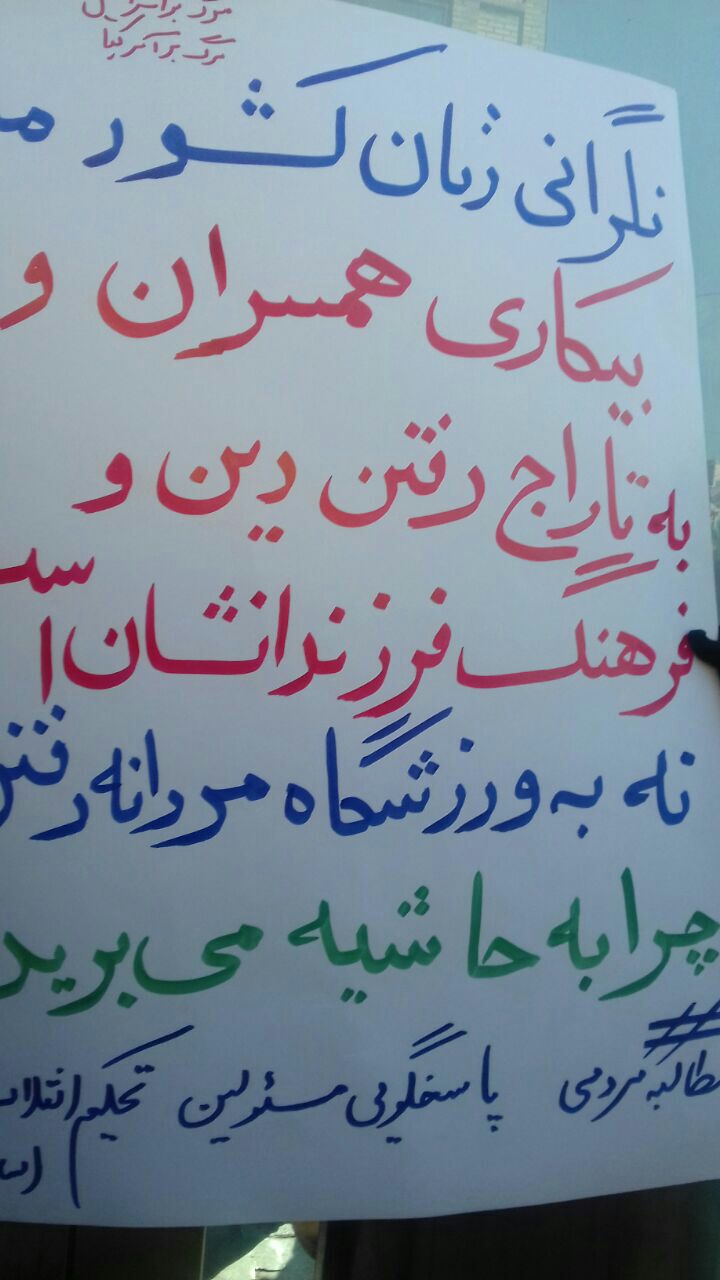 مرگ بر اسرائیل
مرگ بر آمریکا
نگرانی زنان کشور
بیکاری همسران و
به تاراج رفتن دین و
فرهنگ فرزندانشان است
نه به ورزشگاه مردانه رفتن
چرا به حاشیه می‌برید
#مطالبه مردمی پاسخگویی مسئولین تحکیم